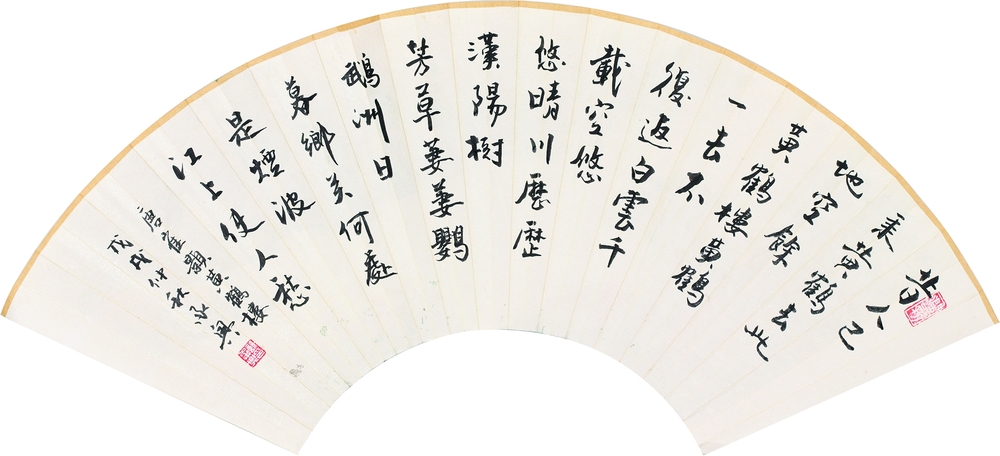 昔人已
乘黄鶴去此
地空餘
黃鶴樓黃鶴
一去不
復返白雲千
載空悠
悠晴川歷歷
漢陽樹
芳草萋萋鸚
鵡洲日
暮鄉关何處
是煙波
江上使人愁
唐崔顥黃鶴樓
戊戌仲秋興